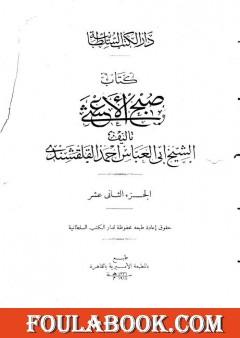 دار الكتب السلطانية
كتاب
صبح الأعشى
تأليف
الشيخ أبي العباس أحمد القلقشندي
الجزء الثانى عشر
حقوق إعادة طبعه محفوظة لدار الكتب السلطانية
طبع
بالمطبعة الأميرية بالقاهرة
FOULABOOK.COM